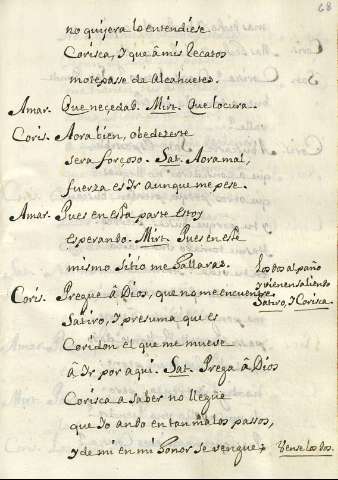 68
no quisera lo entendiese
Corisca, I que â mis Recatos
motepasse de Alcahuetes.
Amar. Que neçedad. Mirt. Que locura.
Coris. Aora bien, obedezerte
sera forçoso. Sat. Aora mal,
fuerza es Ir aunque me pese.
Amar. Pues en esta parte estoy
esperando. Mirt. Pues en este
mismo sitio me hallaras.
Los dos al paño
y vienen saliendo
Satiro, y Corisca.
Coris. Pregue â Dios, que no me encuentre
Satiro, I presuma que es
Coridon el que me mueve
a Ir por aqui. Sat. Prega â Dios
Corisca a saber no llegue
que Io ando en tan malos passos,
y de mi en mi honor se vengue. Vense los dos.